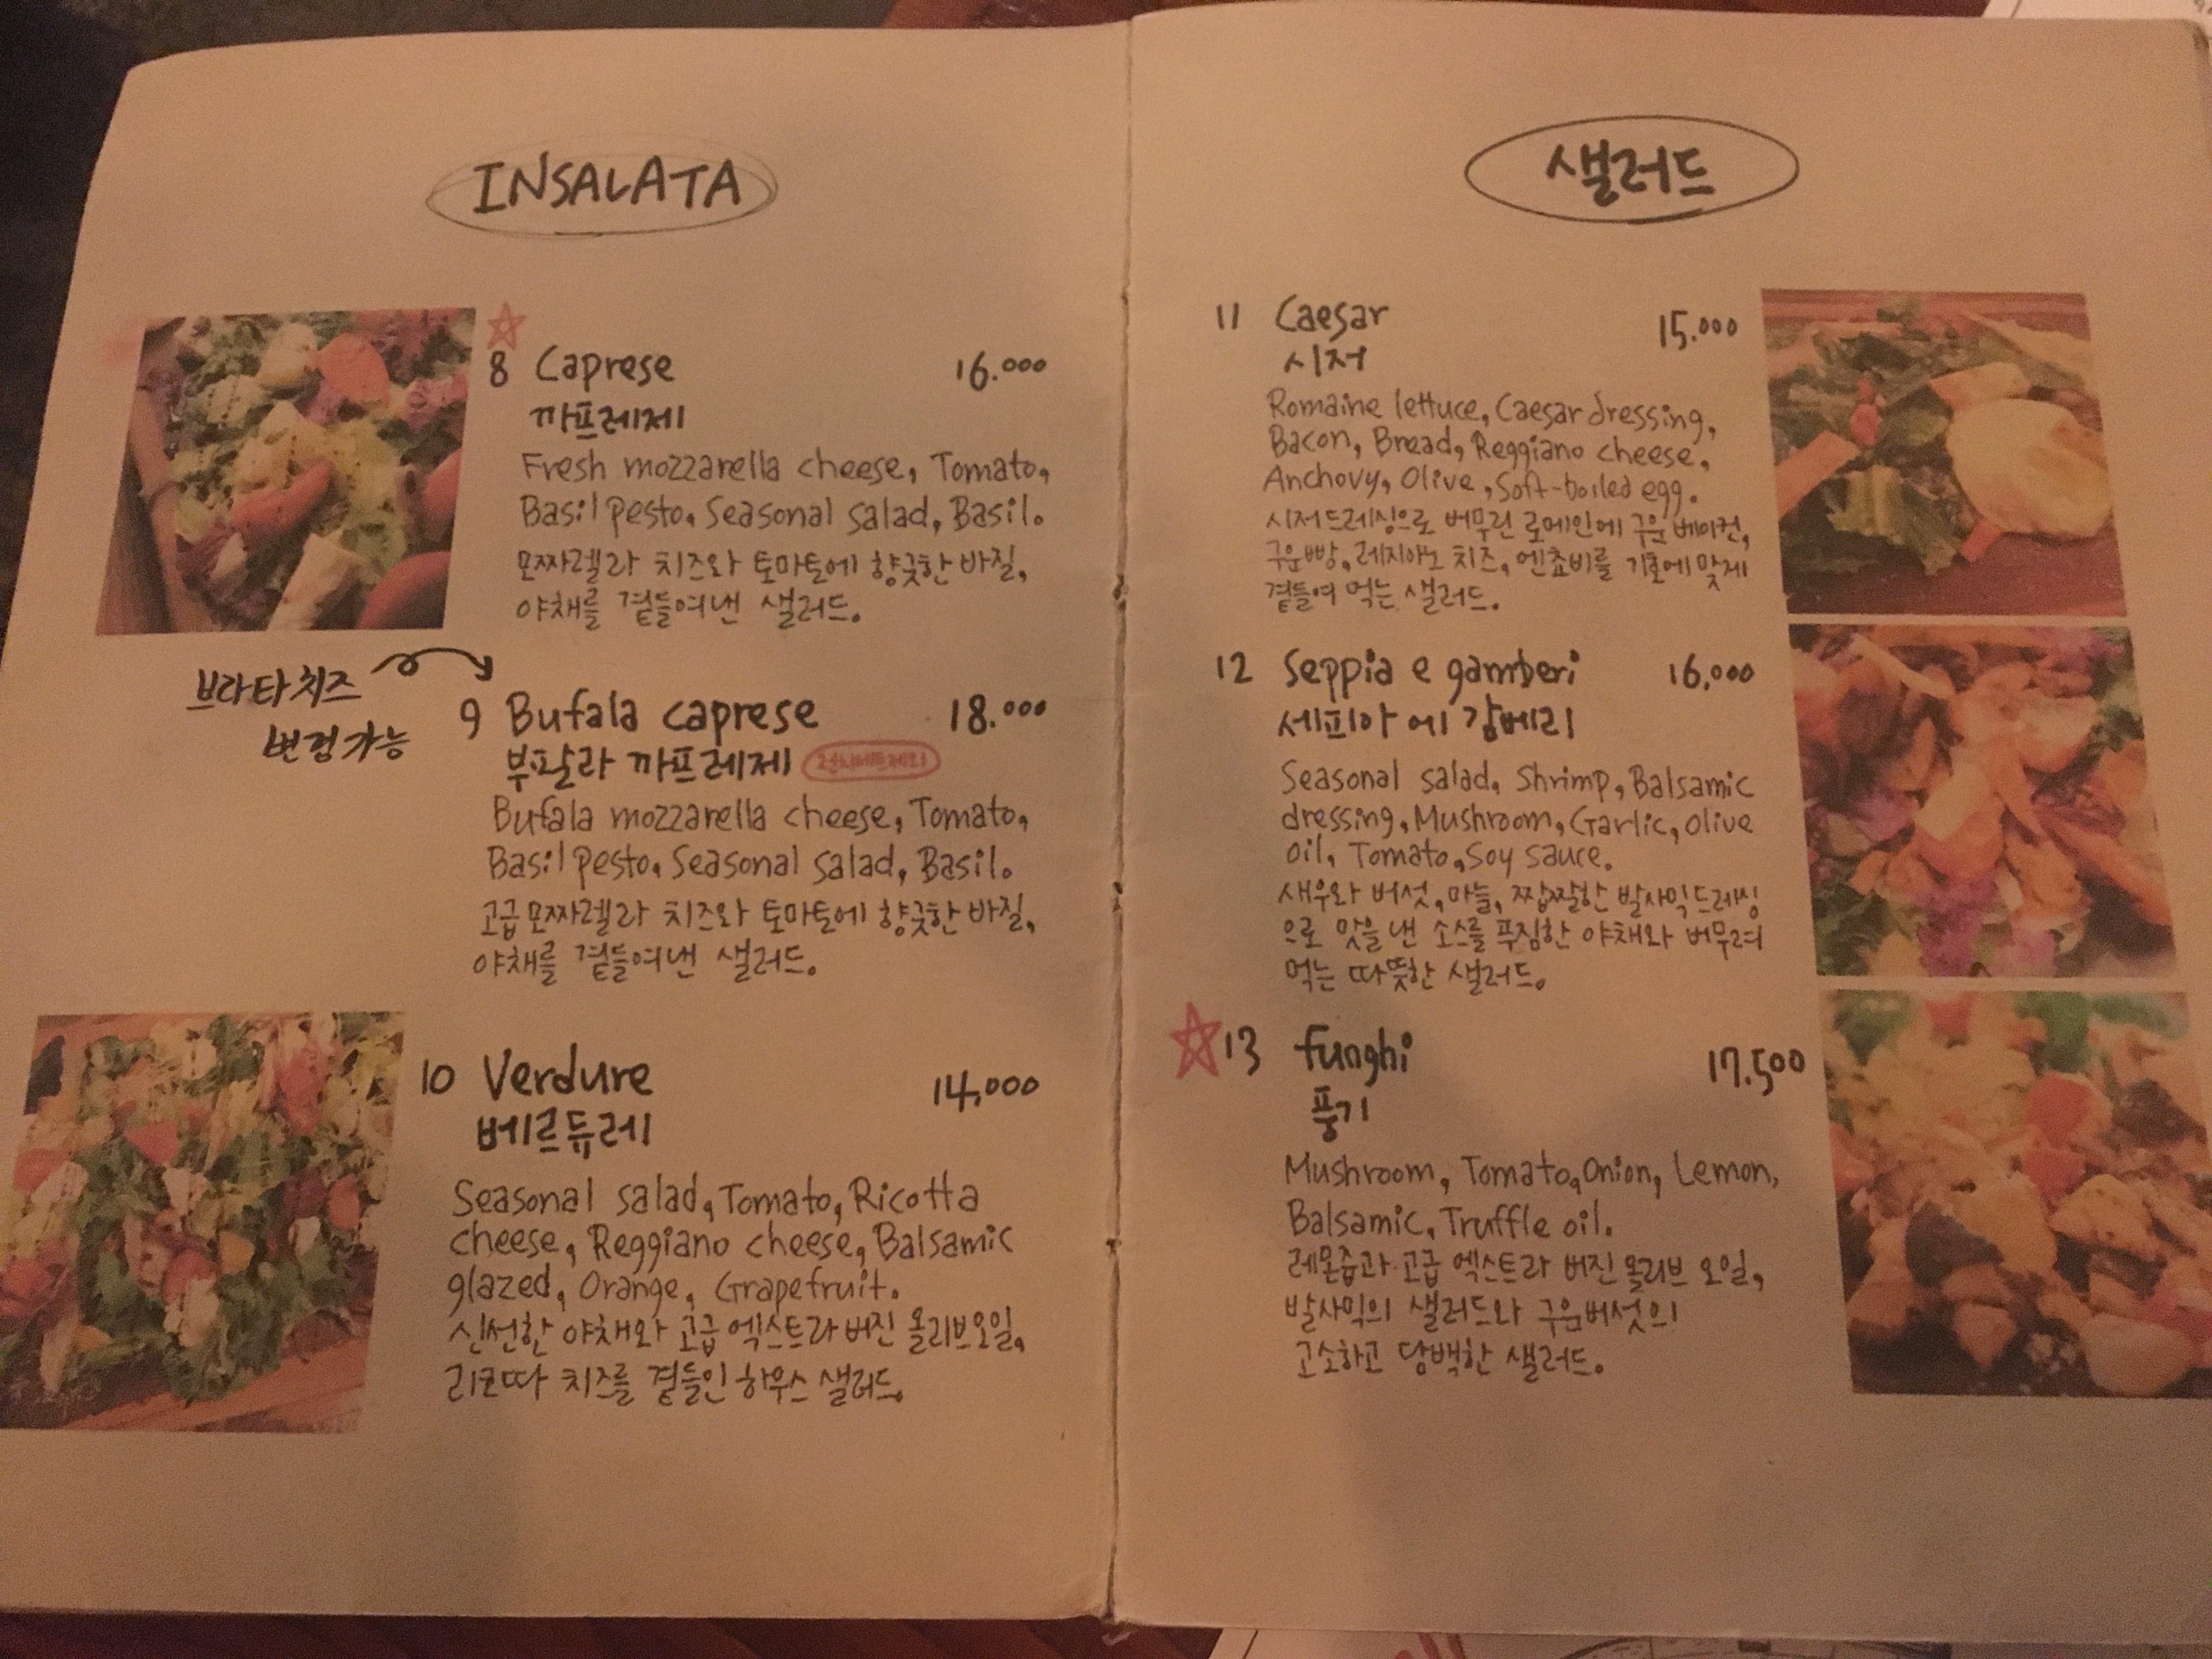 INSALATA
8 Caprese 16.000
까프레제
Fresh mozzarella cheese, Tomato,
Basil pesto, Seasonal salad, Basil.
모짜렐라 치즈와 토마토에 향긋한 바질,
야채를 곁들여낸 샐러드.
브라타치즈
변경가능
9 Bufala caprese 18.000
부팔라 까프레제
Bufala mozzarella cheese, Tomato,
Basil pesto, Seasonal salad, Basil.
고급모짜렐라 치즈와 토마토에 향긋한 바질,
야채를 곁들여낸 샐러드.
10 Verdure 14,000
베르듀레
Seasonal salad, Tomato, Ricotta
cheese, Reggiano cheese, Balsamic
glazed, Orange, Grapefruit.
신선한 야채와 고급 엑스트라버진 올리브오일,
리코따 치즈를 곁들인 하우스 샐러드.
샐러드
11 Caesar 15.000
시저
Romaine lettuce, Caesar dressing,
Bacon, Bread, Reggiano cheese,
Anchovy, Olive, Soft-boiled egg.
시저드레싱으로 버무린 로메인에 구운 베이컨,
구운빵, 레지아노 치즈, 엔쵸비를 기호에 맞게
곁들여 먹는 샐러드.
12 Seppia e gamberi 16,000
세피아 에 감베리
Seasonal salad, Shrimp, Balsamic
dressing, Mushroom, Garlic, Olive
oil, Tomato, Soy sauce.
새우와 버섯, 마늘, 짭짤한 발사믹드레싱
으로 맛을 낸 소스를 푸짐한 야채와 버무려
먹는 따뜻한 샐러드.
13 funghi 17.500
풍기
Mushroom, Tomato, Onion, Lemon,
Balsamic, Truffle oil.
레몬즙과 고급 엑스트라 버진 올리브 오일,
발사믹의 샐러드와 구운버섯의
고소하고 담백한 샐러드.